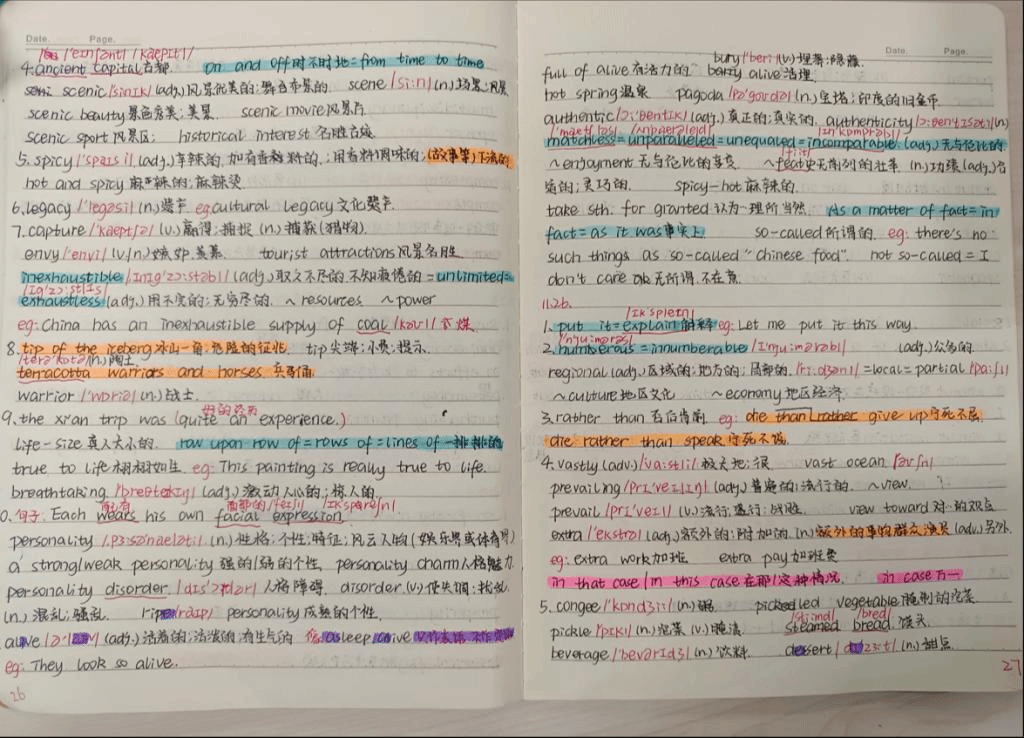 Date. Page.
/'eɪnʃənt/ /'kæpɪt/
4. ancient capital 古都. on and off 时不时地 = from time to time
scenic /sinɪk/ (adj.) 风景优美的; 舞台布景的. scene /si:n/ (n.) 场景; 风景
scenic beauty 景色秀美; 美景. scenic movie 风景片
scenic sport 风景区; historical interest 名胜古迹.
5. spicy /'spaɪsi/ (adj.) 辛辣的, 加有香料的; 用香料调味的; (故事等) 下流的
hot and spicy 麻辣的; 麻辣烫
6. legacy /'legəsi/ (n.) 遗产 eg cultural legacy 文化遗产.
7. capture /'kæptʃə/ (v.) 赢得; 捕捉 (n.) 捕获 (猎物)
envy /'envi/ (v/n) 嫉妒. 羡慕. tourist attractions 风景名胜
inexhaustible /ɪnɪg'zɔ:stəbl/ (adj.) 取之不尽的. 不知疲倦的 = unlimited =
/ɪg'zɔ:stlɪs/
exhaustless (adj.) 用不完的; 无穷尽的. ~ resources ~ power
eg: China has an inexhaustible supply of coal /kəʊl/ 煤
8. tip of the iceberg 冰山一角; 危险的征兆. tip 尖端; 小费; 提示.
/terə'kɒtə/ (n.) 陶土
terracotta warriors and horses 兵马俑
warrior /'wɒrɪə/ (n.) 战士.
9. the xi'an trip was (quite an experience.)
Life-size 真人大小的. row upon row of = rows of = lines of 一排排的
true to life 栩栩如生 eg: This painting is really true to life.
breathtaking /'breθteɪkɪŋ/ (adj.) 激动人心的; 惊人的.
面部的 /'feɪʃl/ /ɪk'spreʃn/
0. 句子: Each wears his own facial expression.
personality /,pɜ:sə'næləti/ (n.) 性格; 个性; 特征; 风云人物 (娱乐界或体育界)
a strong/weak personality 强的/弱的个性. personality charm 人格魅力
personality disorder /dɪs'ɔ:də/ 人格障碍. disorder (v.) 使失调; 扰乱
(n.) 混乱; 骚乱. ripe /raɪp/ personality 成熟的个性.
alive (adj.) 活着的; 活泼的; 有生气的 asleep
eg: They look so alive.
26
Date. Page.
bury /'beri/ (v.) 埋葬; 隐藏
full of alive 有活力的 bury alive 活埋
hot spring 温泉 pagoda /pə'gəʊdə/ (n.) 宝塔; 印度的旧金币
authentic /ɔ:'θentɪk/ (adj.) 真正的; 真实的. authenticity /ɔ:θen'tɪsəti/ (n)
matchless = unparalleled = unequaled = incomparable (adj.) 无与伦比的
~ enjoyment 无与伦比的享受 ~ feat 史无前例的壮举 (n.) 功绩 (adj.) 合
适的; 灵巧的. spicy-hot 麻辣的.
take sth. for granted 认为…理所当然. As a matter of fact = in
fact = as it was 事实上 so-called 所谓的. eg: there's no
such things as so-called "Chinese food". not so-called = I
don't care 无所谓. 不在意
11.26.
/ɪk'spleɪn/
1. put it = explain 解释 eg: Let me put it this way.
/'nju:mərəs/
2. numberous = innumberable /ɪ'nju:mərəbl/ (adj.) 众多的.
regional (adj.) 区域的; 地方的; 局部的. /'ri:dʒənl/ = local = partial /'pɑ:ʃl/
~ culture 地区文化 ~ economy 地区经济
3. rather than 否后肯前 eg: die than rather give up 宁死不屈
die rather than speak 宁死不说
4. vastly (adv.) /'vɑ:stli/ 极大地; 很 vast ocean /'əʊʃn/
prevailing /prɪ'veɪlɪŋ/ (adj.) 普遍的; 流行的. ~ view.
prevail /prɪ'veɪl/ (v.) 流行; 盛行; 战胜. view toward 对…的观点
extra /'ekstrə/ (adj.) 额外的; 附加的 (n.) 额外的事物; 群众演员 (adv.) 另外.
eg: extra work 加班 extra pay 加班费
in that case / in this case 在那/这种情况. in case 万一
5. congee /'kɒndʒi:/ (n.) 粥 pickled vegetable 腌制的泡菜
/sti:md/ /bred/
pickle /'pɪkl/ (n.) 泡菜 (v.) 腌渍 steamed bread 馒头
beverage /'bevərɪdʒ/ (n.) 饮料. dessert (n.) 甜点
27